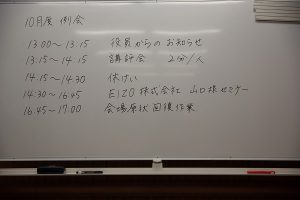 10月度 例会
13:00〜13:15 役員からのお知らせ
13:15〜14:15 講評会 2分/人
14:15〜14:30 休けい
14:30〜16:45 EIZO株式会社 山口様セミナー
16:45〜17:00 会場原状回復作業